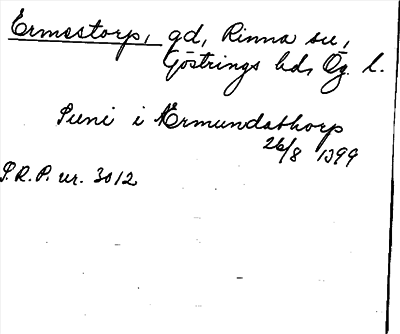 Ermestorp, gd, Rinna sn,
Göstrings hd, Ög. l.
Sueni i Ærmundathorp
26/8 1399
S.R.P. nr. 3012